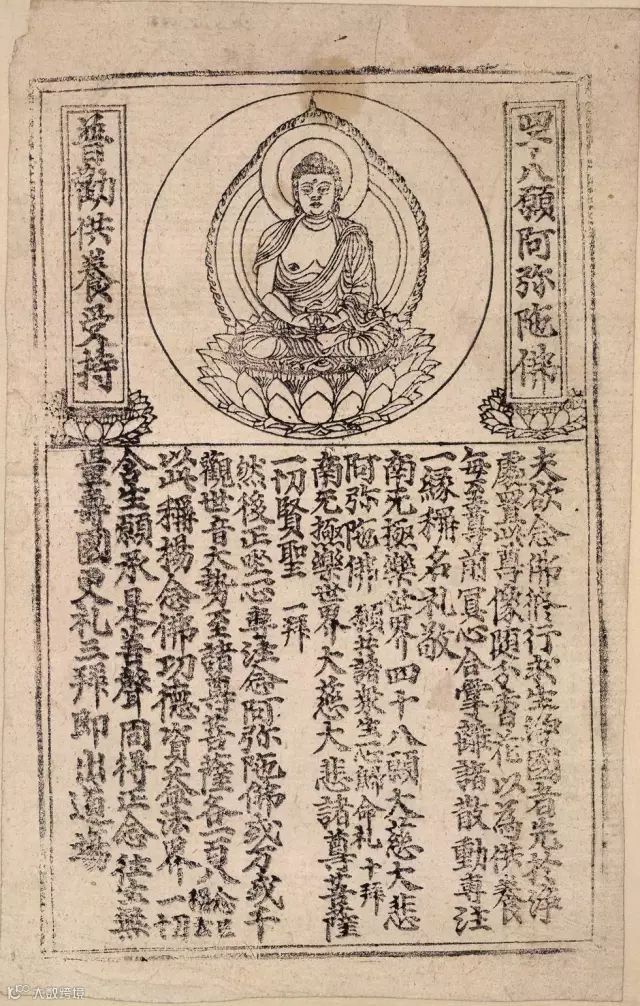 四十八願阿弥陁佛
普勸供養受持
夫欲念佛修行求生淨國者先於淨
處置此尊像随分香花以為供養
每至尊前冥心合掌離諸散動專注
一緣稱名礼敬
南无極樂世界四十八願大慈大悲
阿弥陁佛 願共諸衆生一心歸命礼十拜
南无極樂世界大慈大悲諸尊菩薩
一切賢聖 一拜
然後正坐一心專注念阿弥陁佛或万或千
觀世音大勢至諸尊菩薩各一百八
此稱揚念佛功德資益法界一切
含生願承是善聲同得正念往生無
量壽國更礼三拜即出道場
大数跨境